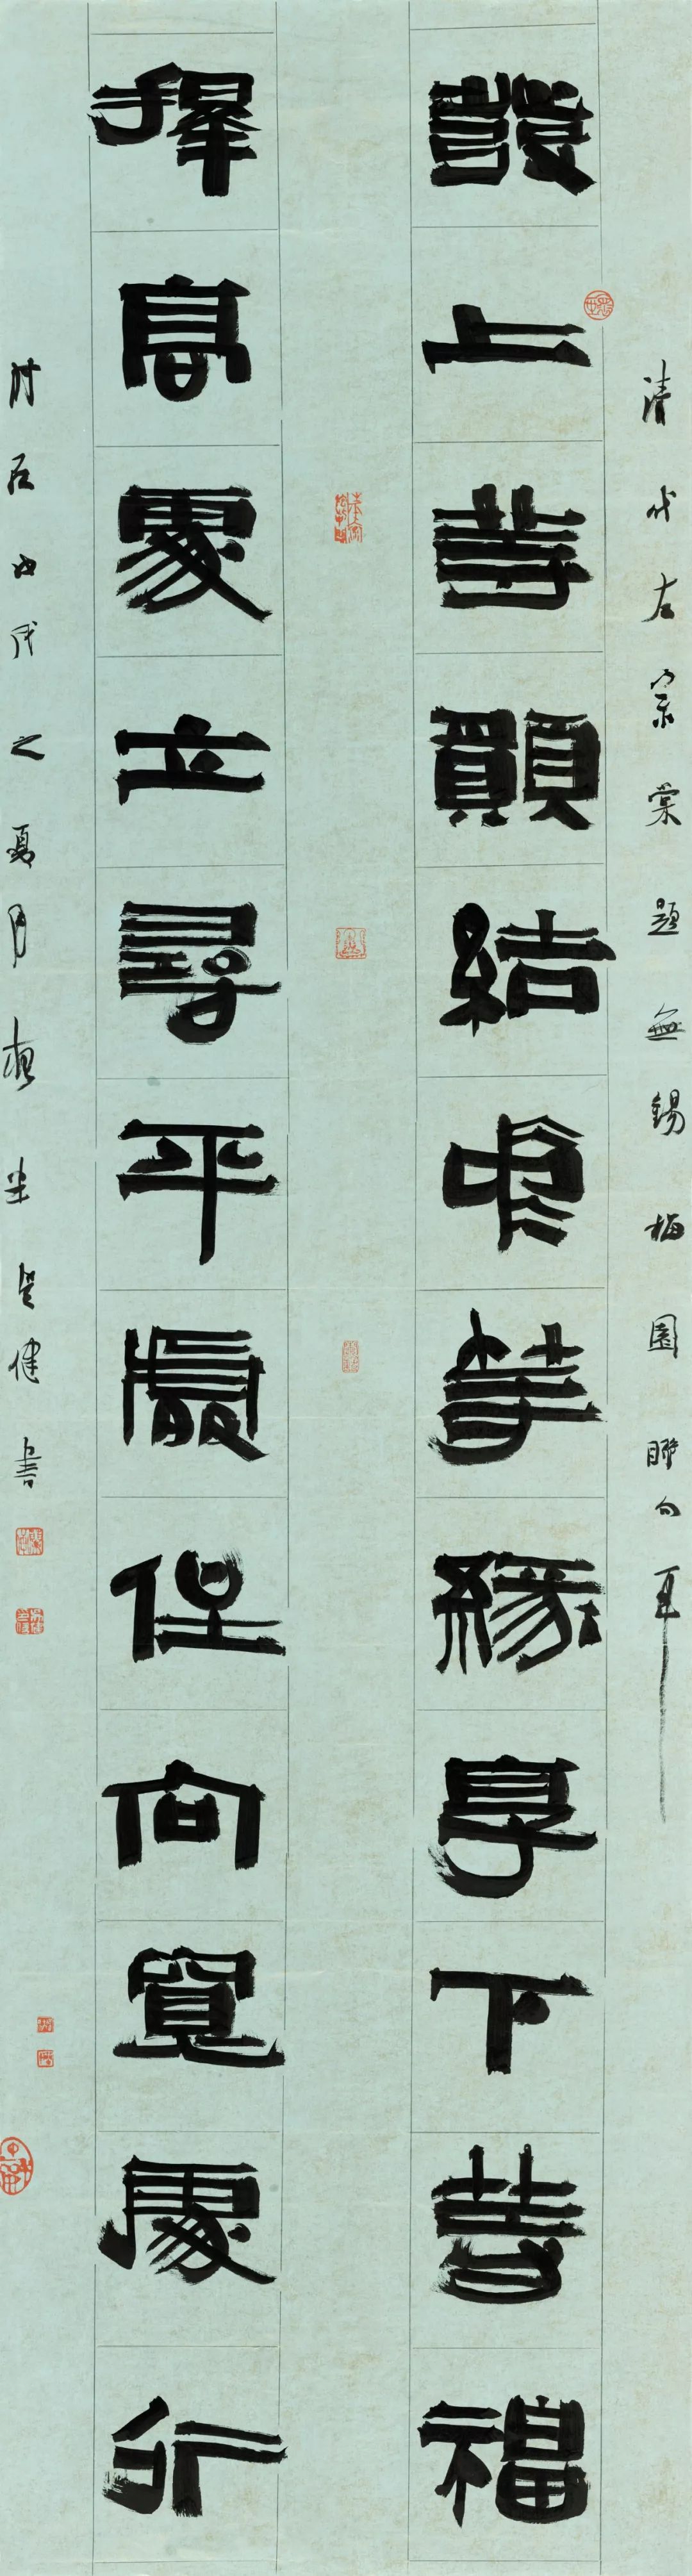 清代左宗棠题無錫梅園联句耳
發上等願結中等緣享下等福
擇高處立尋平處住向寬處行
时在 戊之夏月 健書